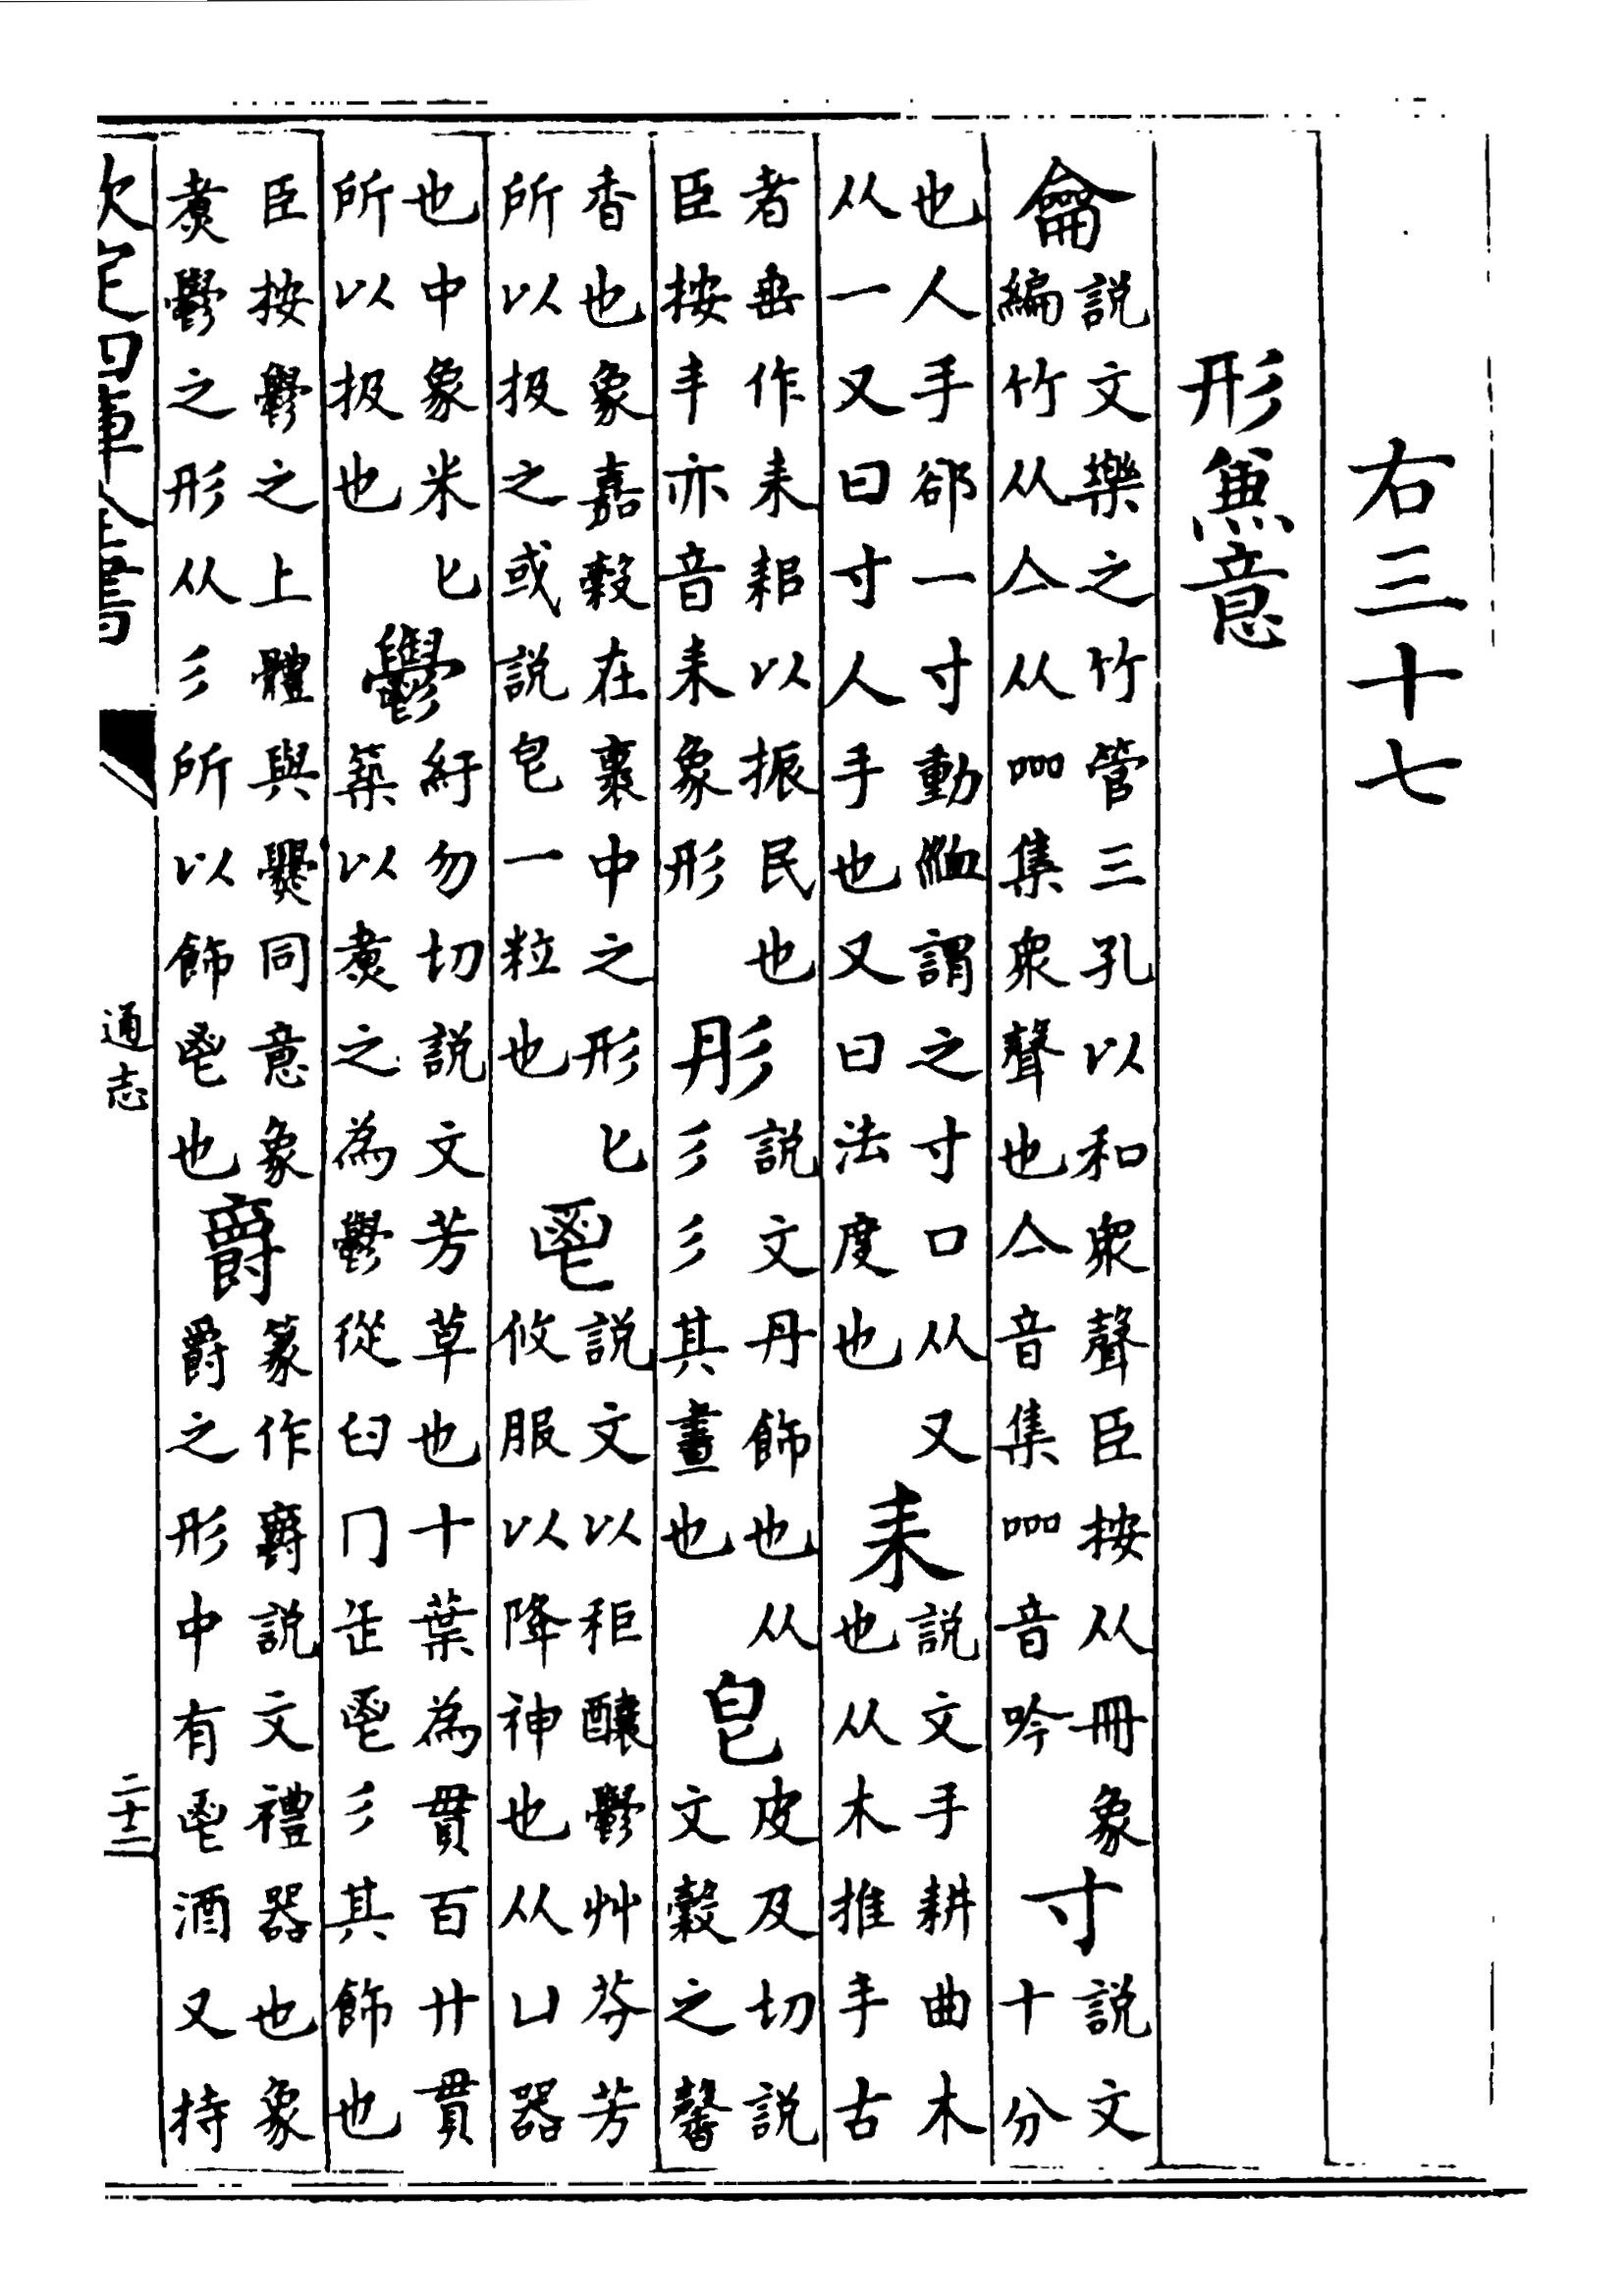 右三十七
形兼意
龠
説文樂之竹管三孔以和衆聲臣按从冊象
編竹从亼从𠱠集衆聲也亼音集𠱠音吟
寸
説文
十分
也人手郤一寸動䘑謂之寸口从又
从一又曰寸人手也又曰法度也
耒
説文手耕曲木
也从木推丰古
者垂作耒耜以振民也
臣按丰亦音耒象形
彤
説文丹飾也从
彡彡其畫也
皀
皮及切説
文穀之馨
香也象嘉穀在裹中之形匕
所以扱之或説皀一粒也
鬯
説文以秬釀鬱艸芬芳
攸服以降神也从凵器
也中象米匕
所以扱也
鬱
紆勿切説文芳草也十葉為貫百廾貫
築以煑之為鬱從臼冂缶鬯彡其飾也
臣按鬱之上體與爨同意象
煑鬱之形从彡所以飾鬯也
爵
篆作爵説文禮器也象
爵之形中有鬯酒又持
欽定四庫全書
通志
二十二